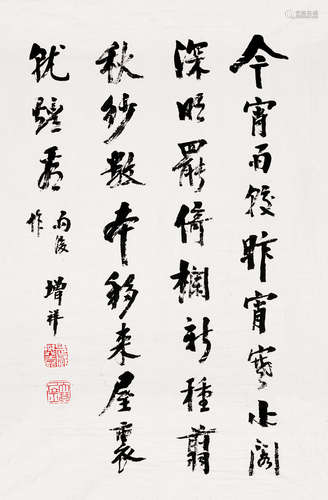 今宵雨較昨宵寒小閣
深罷倚欄新種翦
秋紗數本移來屋裏
就鐙看
雨後
作
增祥